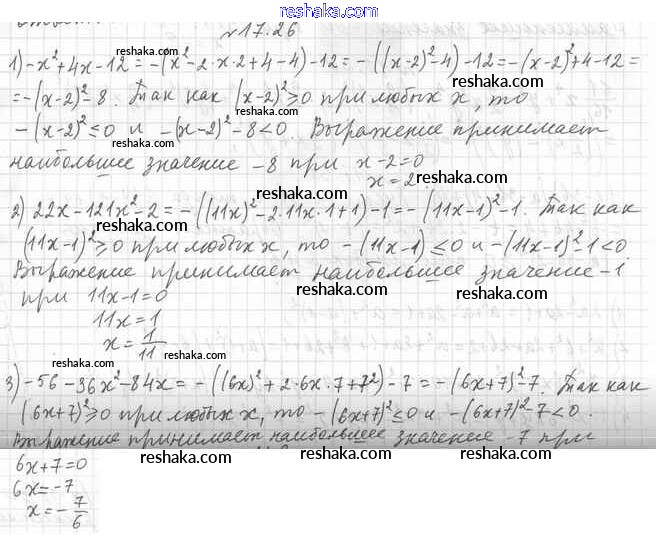 www.reshaka.com
№17.26
1) -x²+4x-12 = -(x²-2·x·2+4-4)-12 = -((x-2)²-4)-12 = -(x-2)²+4-12 =
reshaka.com
reshaka.com
= -(x-2)²-8. Так как (x-2)²≥0 при любых x, то
-(x-2)²≤0 и -(x-2)²-8<0. Выражение принимает
reshaka.com
reshaka.com
наибольшее значение -8 при x-2=0
x=2
reshaka.com
reshaka.com
2) 22x-121x²-2 = -((11x)²-2·11x·1+1)-1 = -(11x-1)²-1. Так как
reshaka.com
(11x-1)²≥0 при любых x, то -(11x-1)≤0 и -(11x-1)²-1<0
reshaka.com
reshaka.com
Выражение принимает наибольшее значение -1
при 11x-1=0
reshaka.com
11x=1
reshaka.com
x=1/11
reshaka.com
reshaka.com
3) -56-36x²-84x = -((6x)²+2·6x·7+7²)-7 = -(6x+7)²-7. Так как
reshaka.com
(6x+7)²≥0 при любых x, то -(6x+7)²≤0 и -(6x+7)²-7<0.
reshaka.com
reshaka.com
Выражение принимает наибольшее значение -7 при
reshaka.com
reshaka.com
6x+7=0
6x=-7
x=-7/6
reshaka.com
reshaka.com